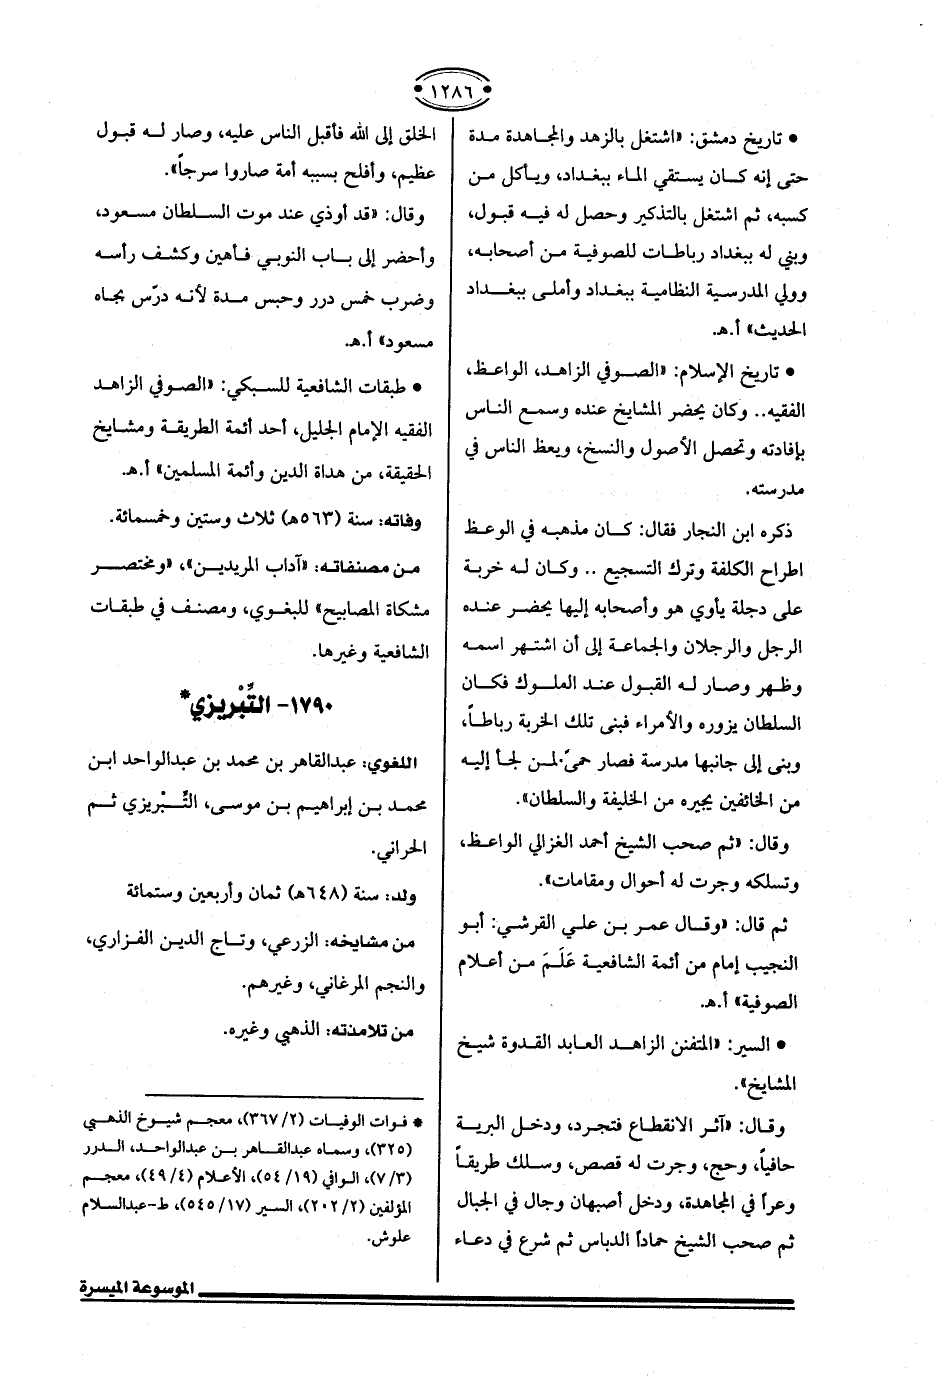 ١٢٨٦
• تاريخ دمشق: «اشتغل بالزهد والمجاهدة مدة
حتى إنه كان يستقي الماء ببغداد، ويأكل من
كسبه، ثم اشتغل بالتذكير وحصل له فيه قبول،
وبني له ببغداد رباطات للصوفية من أصحابه،
وولي المدرسية النظامية ببغداد وأملى ببغداد
الحديث» أ.هـ.
• تاريخ الإسلام: «الصوفي الزاهد، الواعظ،
الفقيه.. وكان يحضر المشايخ عنده وسمع الناس
بإفادته وتحصل الأصول والنسخ، ويعظ الناس في
مدرسته.
ذكره ابن النجار فقال: كان مذهبه في الوعظ
اطراح الكلفة وترك التسجيع .. وكان له خربة
على دجلة يأوي هو وأصحابه إليها يحضر عنده
الرجل والرجلان والجماعة إلى أن اشتهر اسمه
وظهر وصار له القبول عند الملوك فكان
السلطان يزوره والأمراء فبنى تلك الخربة رباطاً،
وبنى إلى جانبها مدرسة فصار حمىً لمن لجأ إليه
من الخائفين يجيره من الخليفة والسلطان».
وقال: «ثم صحب الشيخ أحمد الغزالي الواعظ،
وتسلكه وجرت له أحوال ومقامات».
ثم قال: «وقال عمر بن علي القرشي: أبو
النجيب إمام من أئمة الشافعية عَلَمَ من أعلام
الصوفية» أ.هـ.
• السير: «المتفنن الزاهد العابد القدوة شيخ
المشايخ».
وقال: «آثر الانقطاع فتجرد، ودخل البرية
حافياً، وحج، وجرت له قصص، وسلك طريقاً
وعراً في المجاهدة، ودخل أصبهان وجال في الجبال
ثم صحب الشيخ حماداً الدباس ثم شرع في دعاء
الخلق إلى الله فأقبل الناس عليه، وصار له قبول
عظيم، وأفلح بسببه أمة صاروا سرجاً».
وقال: «قد أوذي عند موت السلطان مسعود،
وأحضر إلى باب النوبي فأهين وكشف رأسه
وضرب خمس درر وحبس مدة لأنه درّس بجاه
مسعود» أ.هـ.
• طبقات الشافعية للسبكي: «الصوفي الزاهد
الفقيه الإمام الجليل، أحد أئمة الطريقة ومشايخ
الحقيقة، من هداة الدين وأئمة المسلمين» أ.هـ.
وفاته: سنة (٥٦٣هـ) ثلاث وستين وخمسمائة.
من مصنفاته: «آداب المريدين»، «ومختصر
مشكاة المصابيح» للبغوي، ومصنف في طبقات
الشافعية وغيرها.
١٧٩٠- التِّبْريزي*
اللغوي: عبدالقاهر بن محمد بن عبدالواحد ابن
محمد بن إبراهيم بن موسى، التِّبْريزي ثم
الحراني.
ولد: سنة (٦٤٨هـ) ثمان وأربعين وستمائة
من مشايخه: الزرعي، وتاج الدين الفزاري،
والنجم المرغاني، وغيرهم.
من تلامذته: الذهبي وغيره.
* فوات الوفيات (٢/ ٣٦٧)، معجم شيوخ الذهبي
(٣٢٥)، وسماه عبدالقاهر بن عبدالواحد، الدرر
(٣/ ٧)، الوافي (١٩/ ٥٤)، الأعلام (٤/ ٤٩)، معجم
المؤلفين (٢/ ٢٠٢)، السير (١٧/ ٥٤٥)، ط-عبدالسلام
علوش.
الموسوعة الميسرة